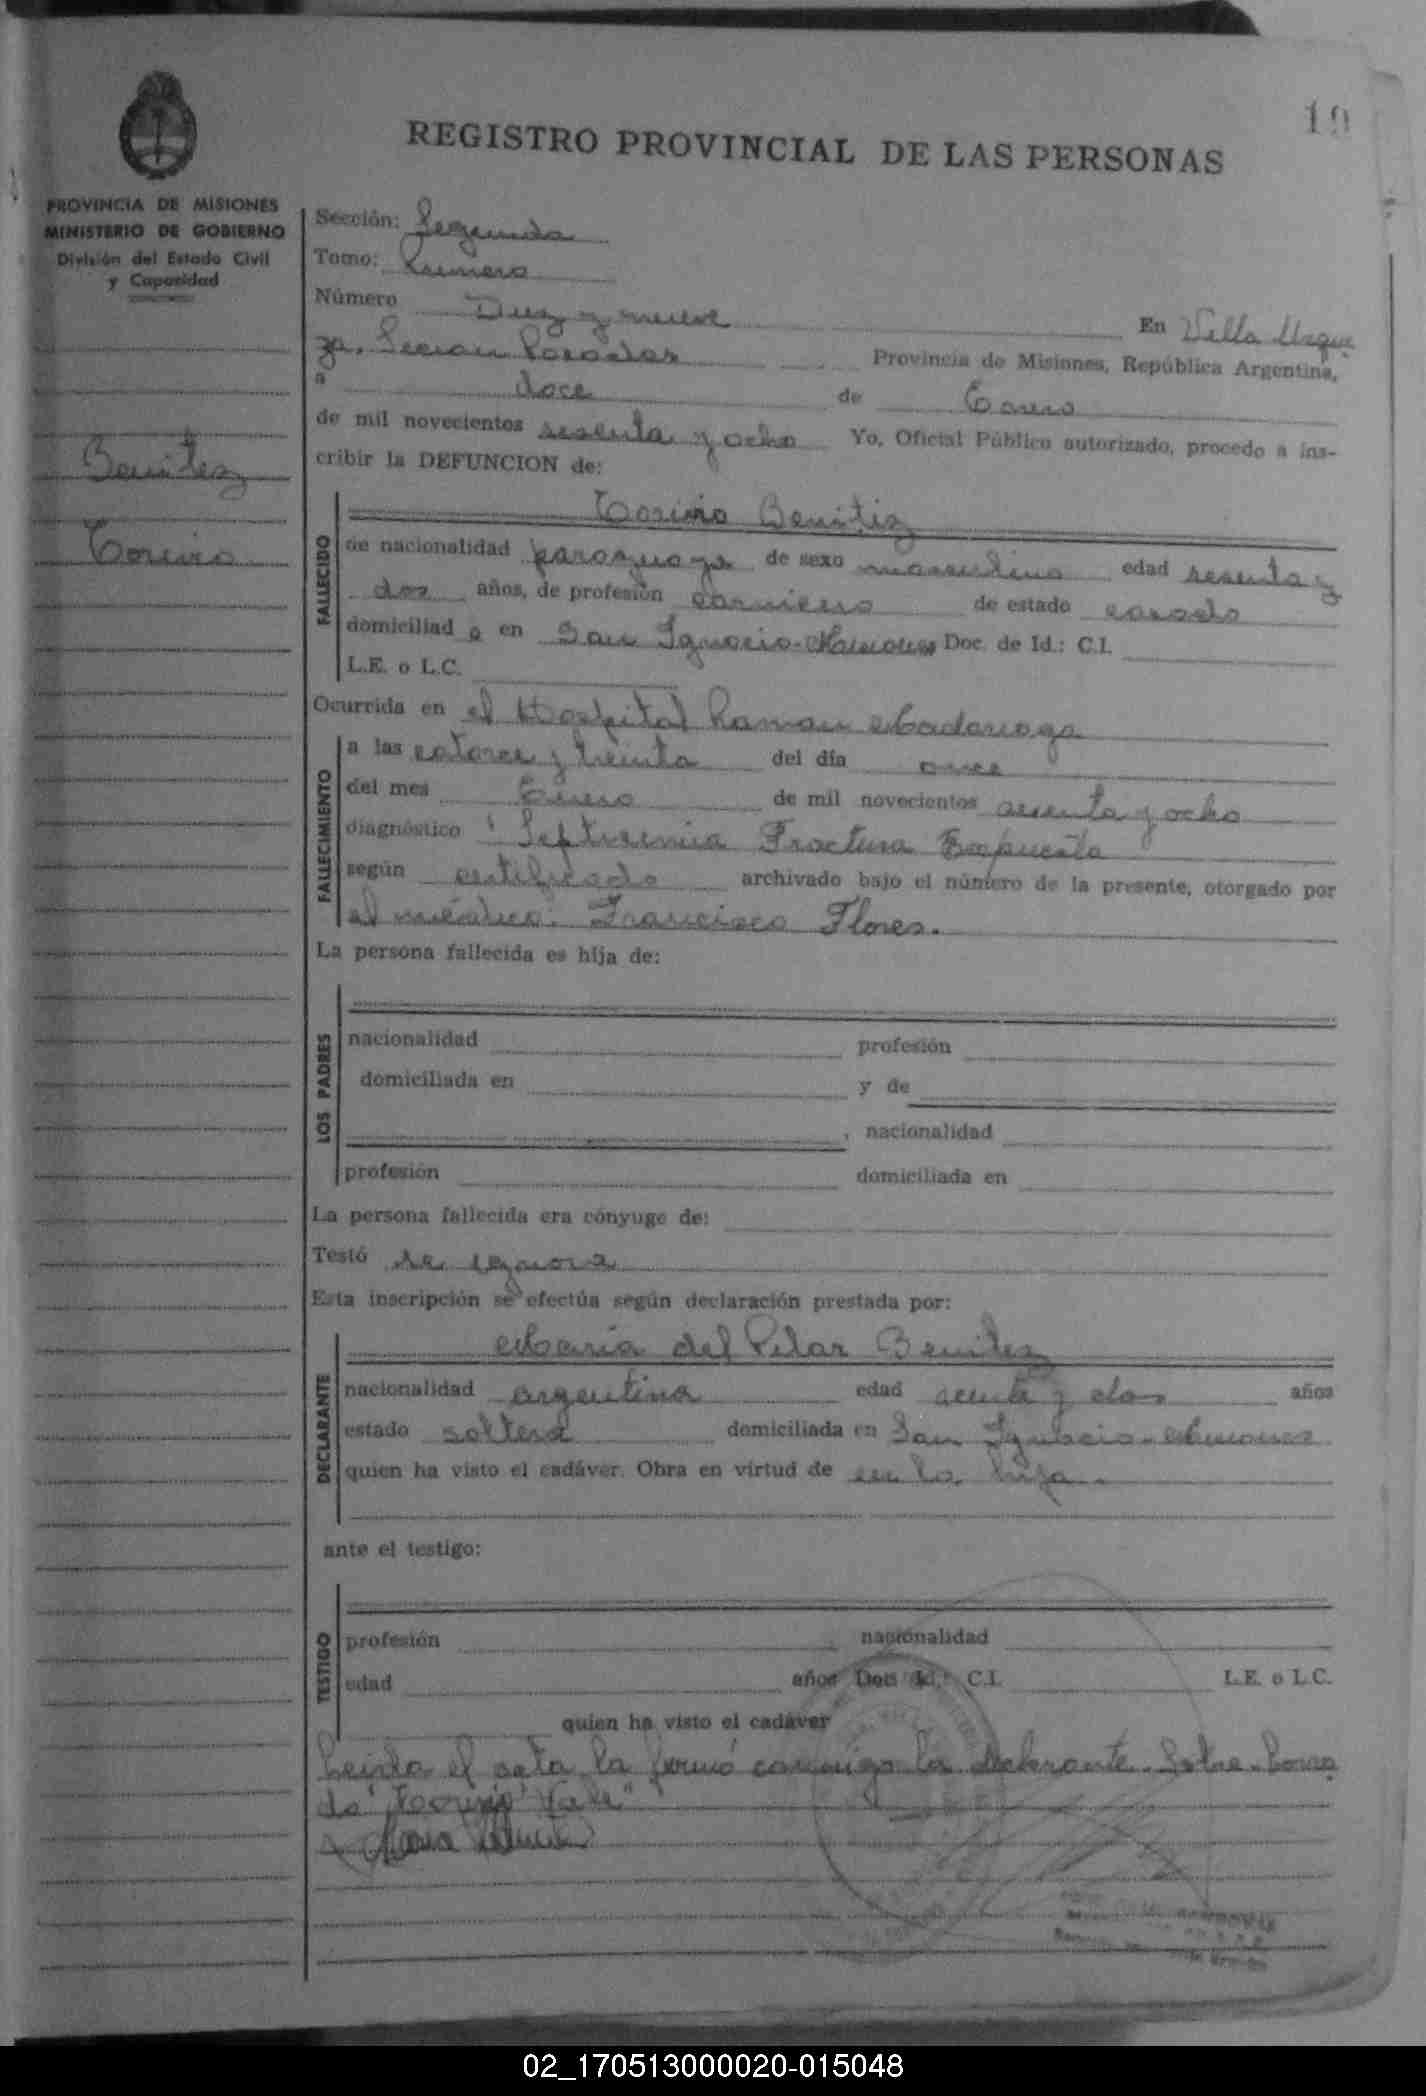 19
REGISTRO PROVINCIAL DE LAS PERSONAS
PROVINCIA DE MISIONES
MINISTERIO DE GOBIERNO
División del Estado Civil
y Capacidad
Benitez
Sección: Segunda
Tomo: Primero
Número Diez y nueve En Villa Urqui
za, Seccion Posadas Provincia de Misiones, República Argentina,
a doce de Enero
de mil novecientos sesenta y ocho Yo, Oficial Público autorizado, procedo a ins-
cribir la DEFUNCION de:
FALLECIDO
Benitez
de nacionalidad paraguaya de sexo masculino edad sesenta y
dos años, de profesión carnicero de estado casado
domiciliad o en San Ignacio-Misiones Doc. de Id.: C.I.
L.E. o L.C.
Ocurrida en el Hospital Ramon Madariaga
FALLECIMIENTO
a las catorce y treinta del día once
del mes Enero de mil novecientos sesenta y ocho
diagnóstico Septicemia Fractura Expuesta
según certificado archivado bajo el número de la presente, otorgado por
el médico: Francisco Flores.
La persona fallecida es hija de:
LOS PADRES
nacionalidad profesión
domiciliada en y de
, nacionalidad
profesión domiciliada en
La persona fallecida era cónyuge de:
Testó se ignora
Esta inscripción se efectúa según declaración prestada por:
DECLARANTE
Maria del Pilar Benitez
nacionalidad argentina edad y dos años
estado soltera domiciliada en San Ignacio-Misiones
quien ha visto el cadáver. Obra en virtud de ser la hija.
ante el testigo:
TESTIGO
profesión nacionalidad
edad años Doc. Id.: C.I. L.E. o L.C.
quien ha visto el cadáver
Leida el acta la firmó conmigo la declarante. Sobre-borra
do Vale"
02_170513000020-015048